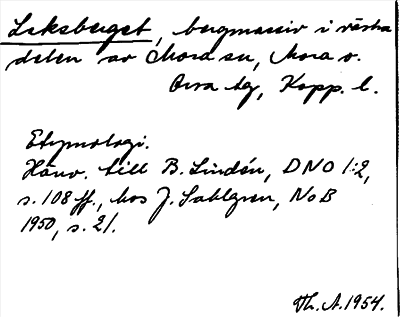 Leksberget, bergmassiv i västra
delen av Mora sn, Mora o.
Orsa tg, Kopp. l.
Etymologi.
Hänv. till B. Lindén, DNO I:2,
s. 108 ff., hos J. Sahlgren, NoB
1950, s. 21.
Th. A. 1954.